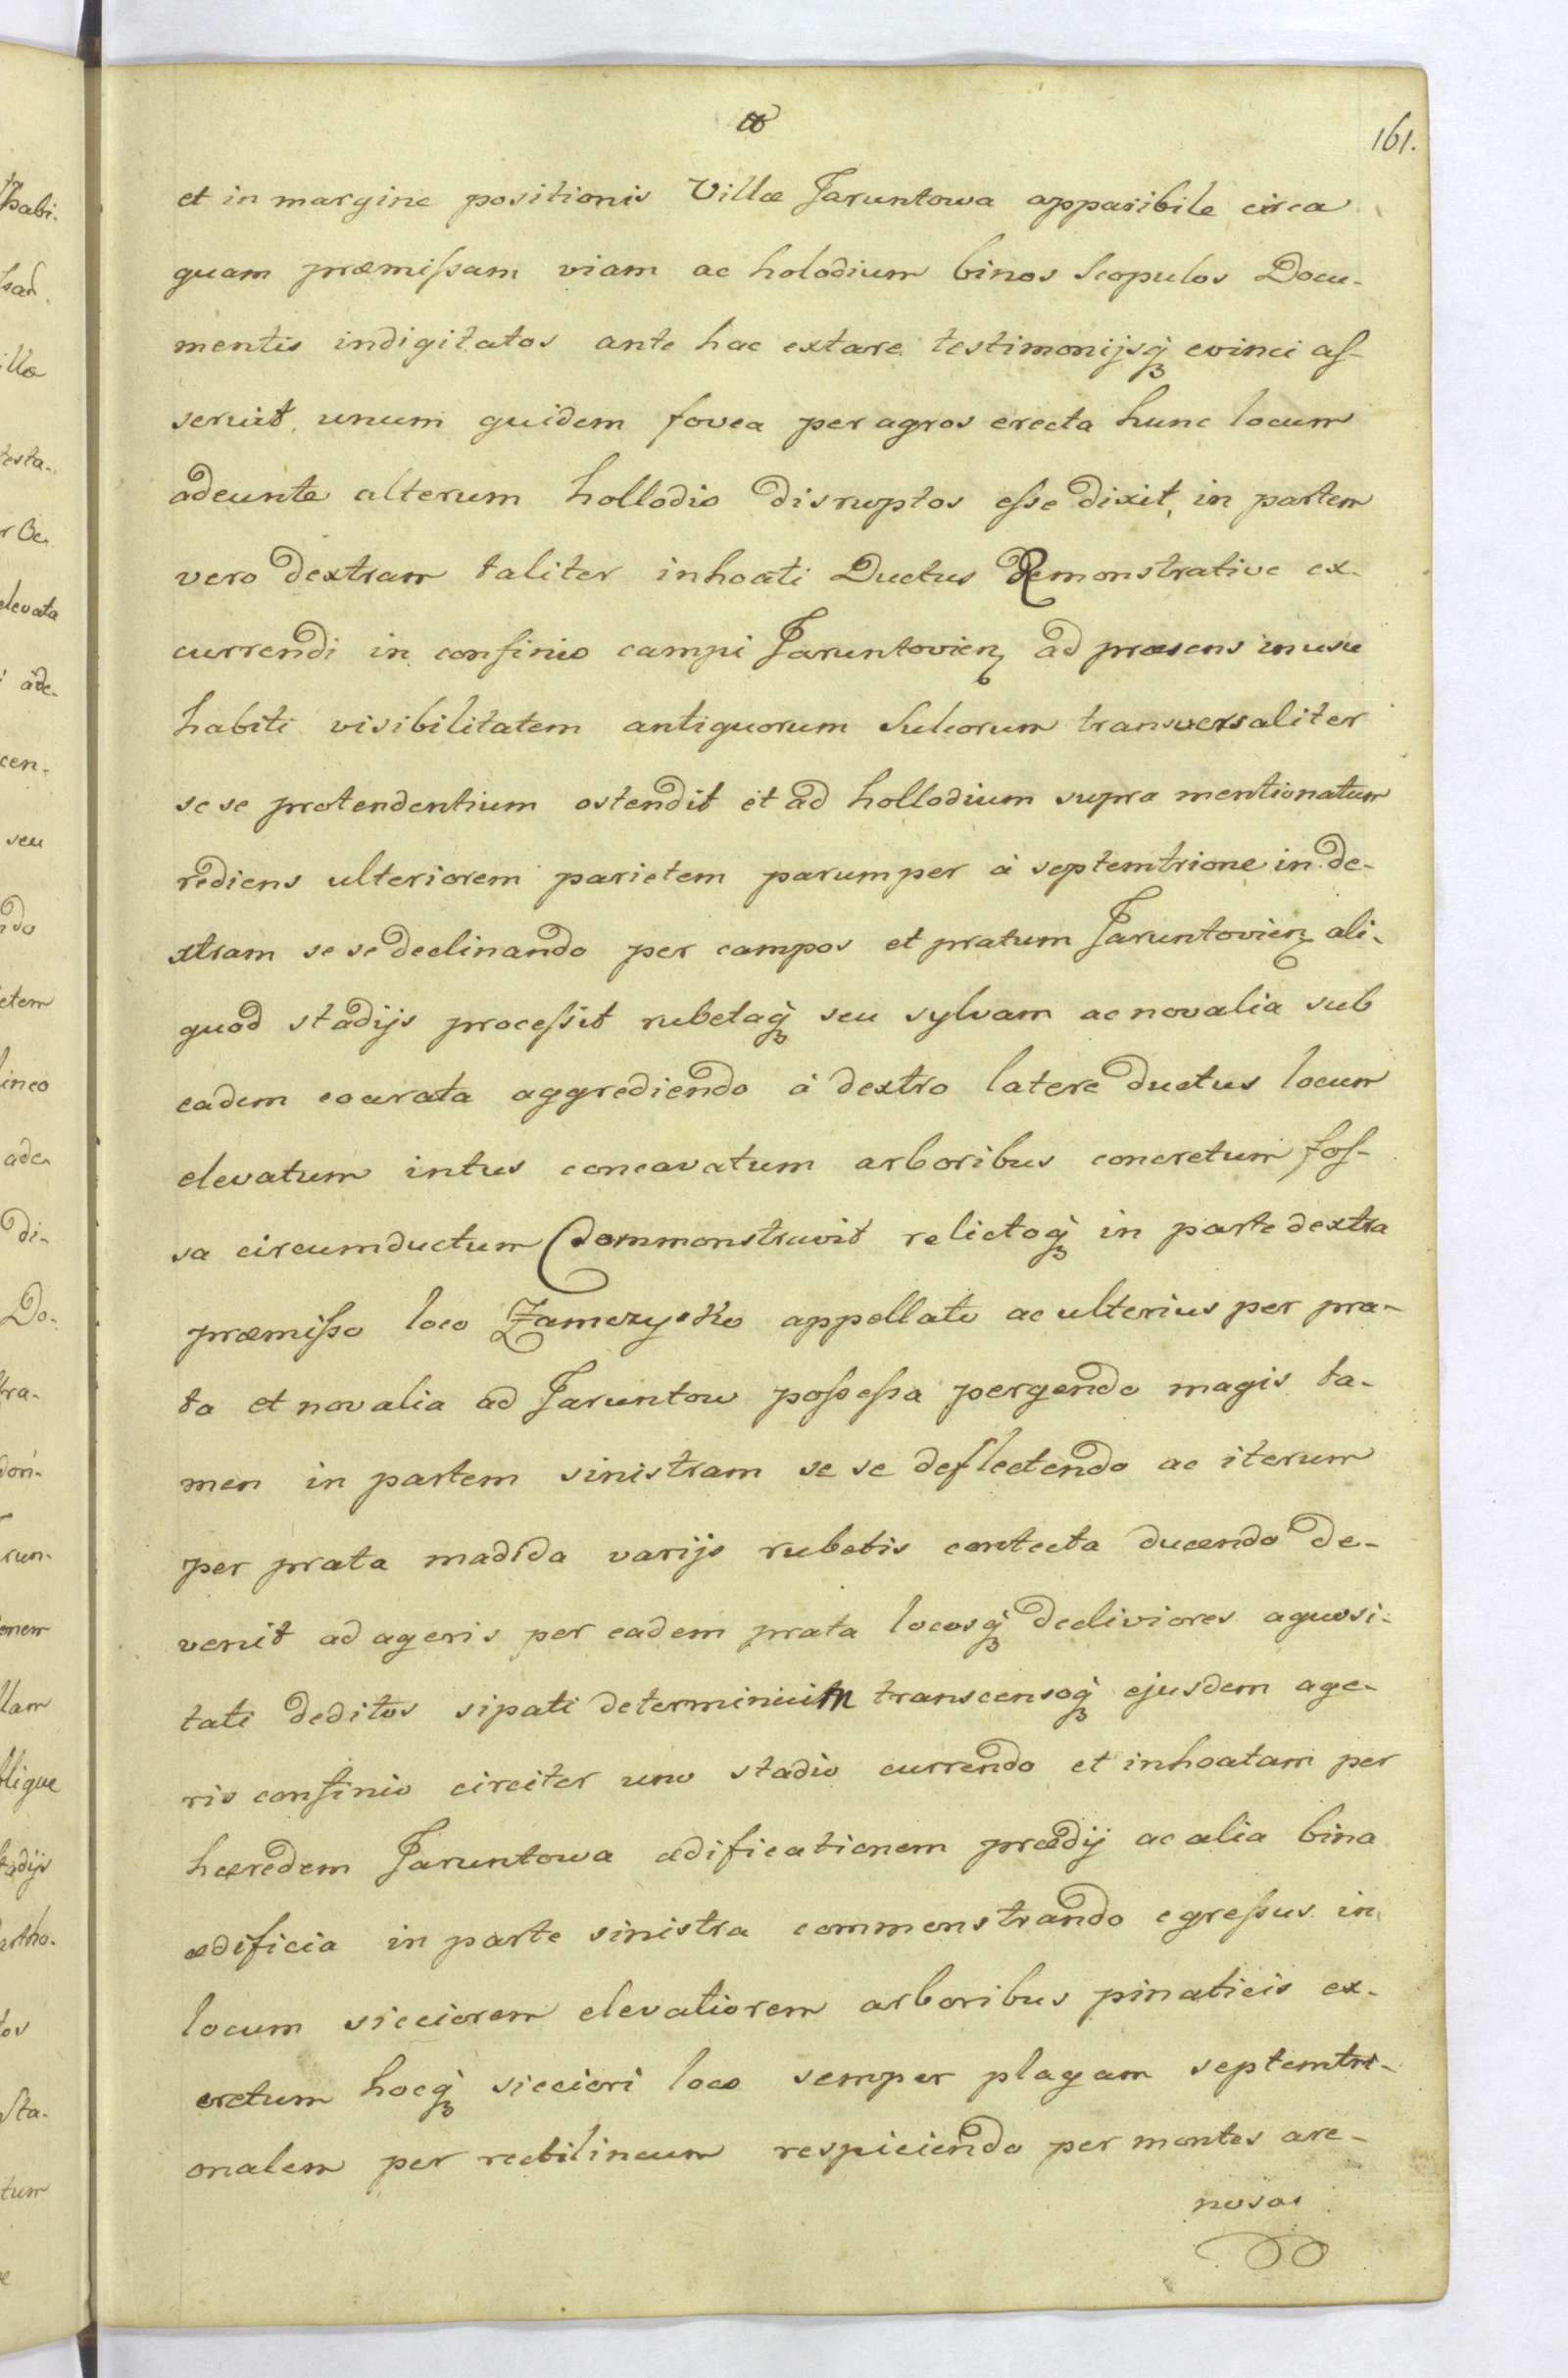 161.
et in margine positionis Villæ Jaruntowa apparibile circa
quam præmissam viam ac holodium binos Scopulos Docu-
mentis indigitatos ante hac extare testimonijsq₃ evinci as-
seruit, unum quidem fovea per agros erecta hunc locum
adeunte alterum hollodio disruptos esse dixit, in partem
vero dextram taliter inhoati Ductus Demonstrative ex-
currendi in confinio campi Jaruntovien, ad præsens in usu
habiti visibilitatem antiquorum Sulcorum transversaliter
se se protendentium ostendit et ad hollodium supra mentionatum
rediens ulteriorem parietem parumper à septemtrione in de-
xtram se se declinando per campos et pratum Jaruntovien ali-
quod stadijs processit rubetaq₃ seu sylvam ac novalia sub
eadem coarata aggrediendo à dextro latere ductus locum
elevatum intus concavatum arboribus concretum fos-
sa circumductum Commonstravit relictoq₃ in parte dextra
præmisso loco Zamczysko appellato ac ulterius per pra-
ta et novalia ad Jaruntow possessa pergendo magis ta-
men in partem sinistram se se deflectendo ac iterum
per prata madida varijs rubetis contecta ducendo de-
venit ad ageris per eadem prata locosq₃ decliviores aquosi-
tati deditos sipati determinium transcensoq₃ ejusdem age-
ris confinio circiter uno stadio currendo et inhoatam per
hæredem Jaruntowa ædificationem prædij ac alia bina
ædificia in parte sinistra commonstrando egressus in
locum sicciorem elevatiorem arboribus pinaticis ex-
cretum hocq₃ sicciori loco semper plagam septemtri-
onalem per rectilineum respiciendo per montes are-
nosos